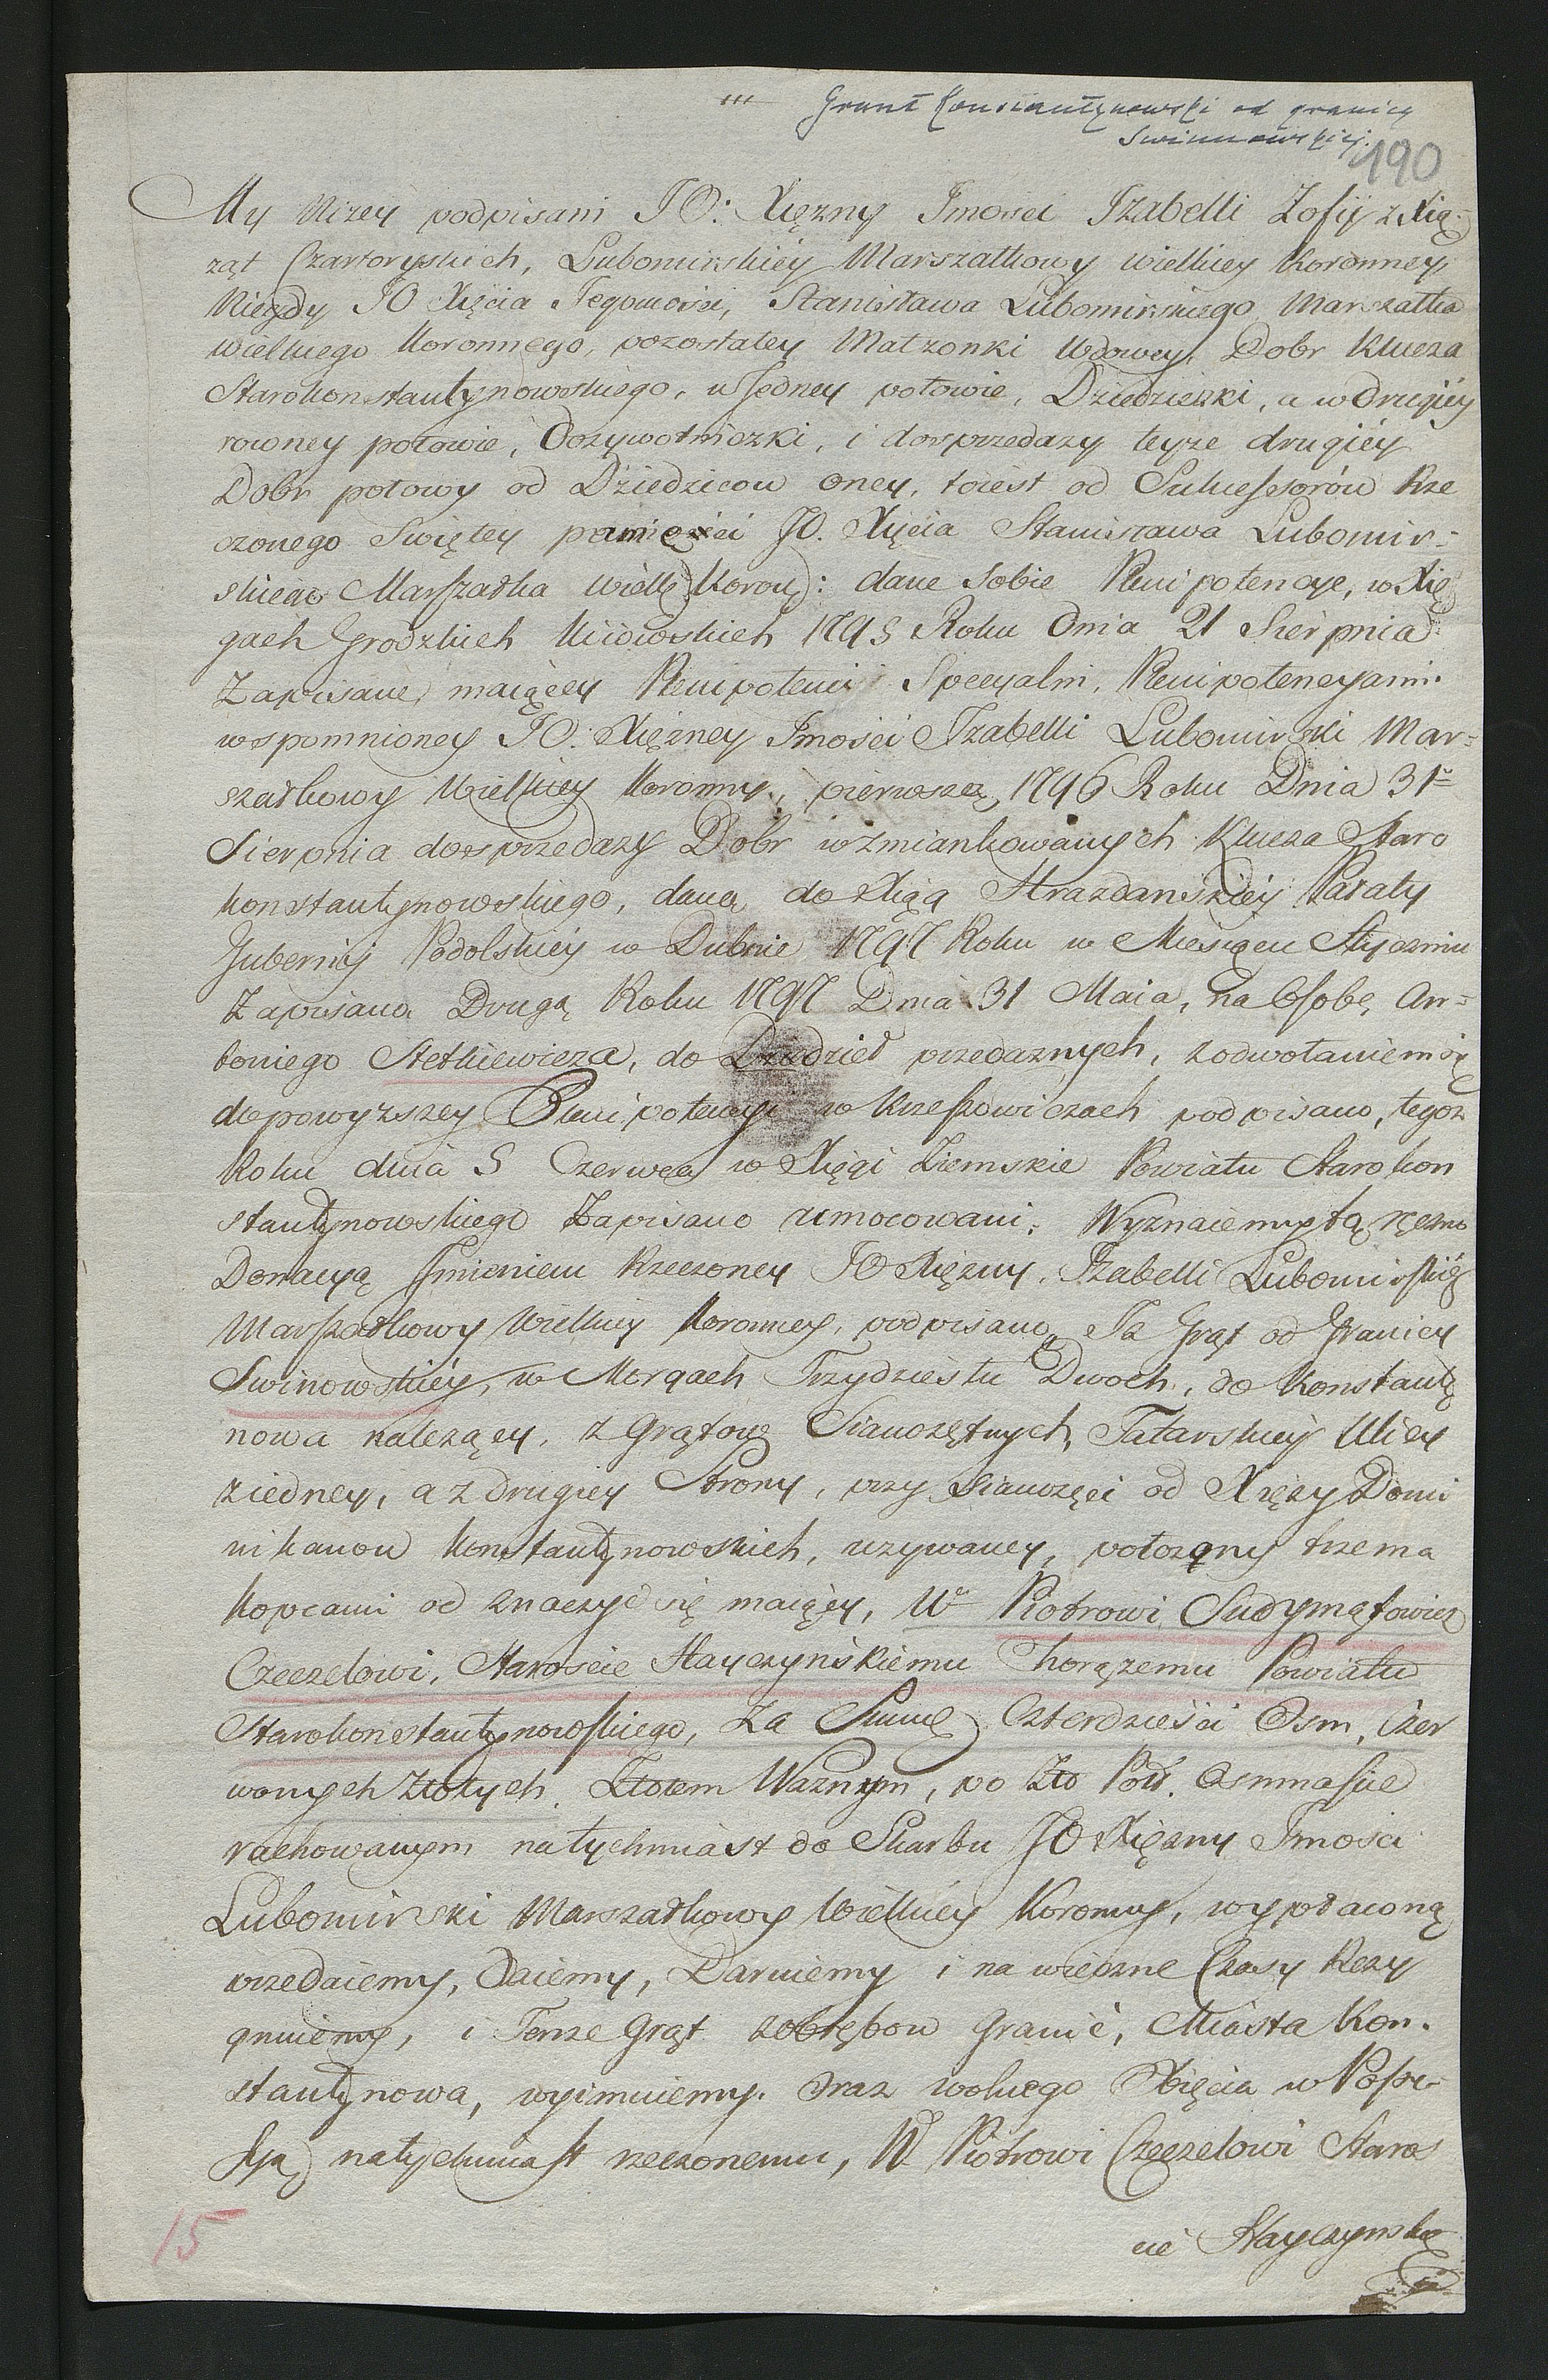 Grunt Konstantynowski od granicy
Swinnowskiej.
190
My niżey podpisani JO: Xiężny Jmości Izabelli Zofij z Xią-
żąt Czartoryskich, Lubomirskiéy Marszałkowy wielkiey Koronney,
Niegdy JO Xięcia Jegomości, Stanisława Lubomirskiego Marszałka
Wielkiego Koronnego, pozostałey Małżonki Wdowey, Dobr Klucza
Starokonstantynowskiego, w Jedney połowie, Dziedziczki, a w drugiéy
rowney połowie, Dożywotniczki, i do sprzedaży teyże drugiéy
Dobr połowy od Dziedzicow oney, toiest od Sukcessorów Rze
czonego Swiętey pamięci JO. Xięcia Stanisława Lubomir-
skiego Marszałka Wielkº Koronº: dane sobie Plenipotencye, w Xię
gach Grodzkich Kiiowskich 1795 Roku Dnia 21 Sierpnia
Zapisane, maiącey Plenipotenci Specyalni, Plenipotencyami
wspomnioney JO: Xiężney Jmości Izabelli Lubomirski Mar-
szałkowy Wielkiey Koronny, pierwszą, 1796 Roku Dnia 31º
Sierpnia do sprzedaży Dobr wzmiankowanych Klucza Staro
konstantynowskiego, daną do Xiąg Grazdanskiéy Pałaty
Gubernij Podolskiéy w Dubnie 1797 Roku w Miesiącu Styczniu
Zapisaną Drugą Roku 1797 Dnia 31 Maia, na Osobę An-
toniego Stetkiewicza, do przedażnych, z odwołaniem się
do powyższey Plenipotencyi w Krzeszowiczach podpisano, tegoz
Roku dnia 5 Czerwca w Xięgi Ziemskie Powiatu Starokon
stantynowskiego Zapisano umocowani; Wyznaiemy tą ręczno
Donacyą Jmieniem Rzeczoney JO Xiężny, Izabelli Lubomirskiéy
Marszałkowy Wielkiey Koronney, podpisaną, Iż Grąt od Granicy
Swinowskiéy, w Morgach Trzydziestu Dwoch, do Konstanty
nowa należący, z Grątow Sianożętnych, Tatarskiéy Ulicy
z iedney, a z drugiey Strony, przy Sianożęci od Xięży Domi
nikanow Konstantynowskich, używaney, położony trzema
kopcami od znaczyć się maiący, Wº Piotrowi Sudymątowicz
Czeczelowi, Staroscie Stayczyńskiemu Chorążemu Powiatu
Starokonstantynowskiego, Za Summę Czterdzieści Osm, Czer
wonych Złotych, Złotem Ważnym, po Zło Pols. Osmnaście
rachowanym natychmiast do Skarbu JO Xiężny Jmości
Lubomirski Marszałkowy Wielkiéy Koronny, wypłaconą
przedaiemy, Daiemy, Daruiemy i na wieczne Czasy Rezy
gnuiemy, i Tenże Grąt z obrębow Granić, Miasta Kon-
stantynowa, wyimuiemy. Oraz wolnego Obięcia w Posse-
ssyą natychmiast rzeczonemu, W Piotrowi Czeczelowi Staroś
cie Stayczynske
15